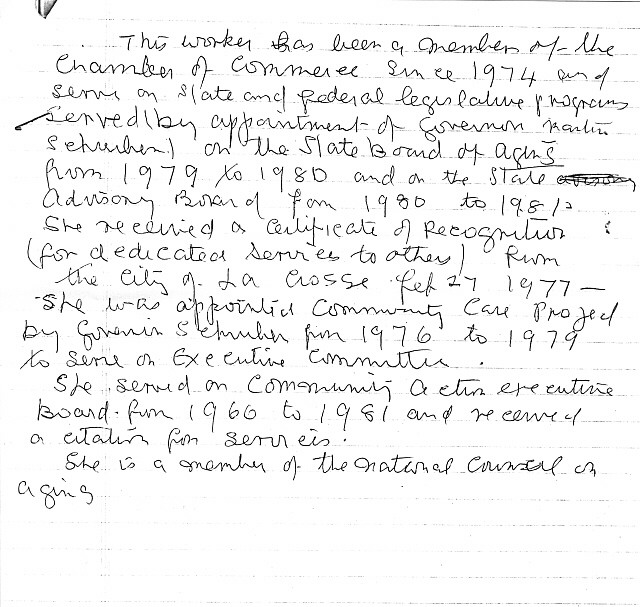 This worker has been a member of the
Chamber of Commerce since 1974 and
serve on State and federal legislative programs
served (by appointment of Governor Martin
Schreiber) on the State Board of Aging
from 1979 to 1980 and on the State
Advisory Board from 1980 to 1981.
She received a Certificate of Recognition
(for dedicated services to others) from
the City of La Crosse Feb 27 1977 —
She was appointed Community Care Project
by Governor Schreiber from 1976 to 1979
to serve on Executive Committee.
She served on Community Action executive
Board from 1966 to 1981 and received
a citation for services.
She is a member of the national Counsel on
aging